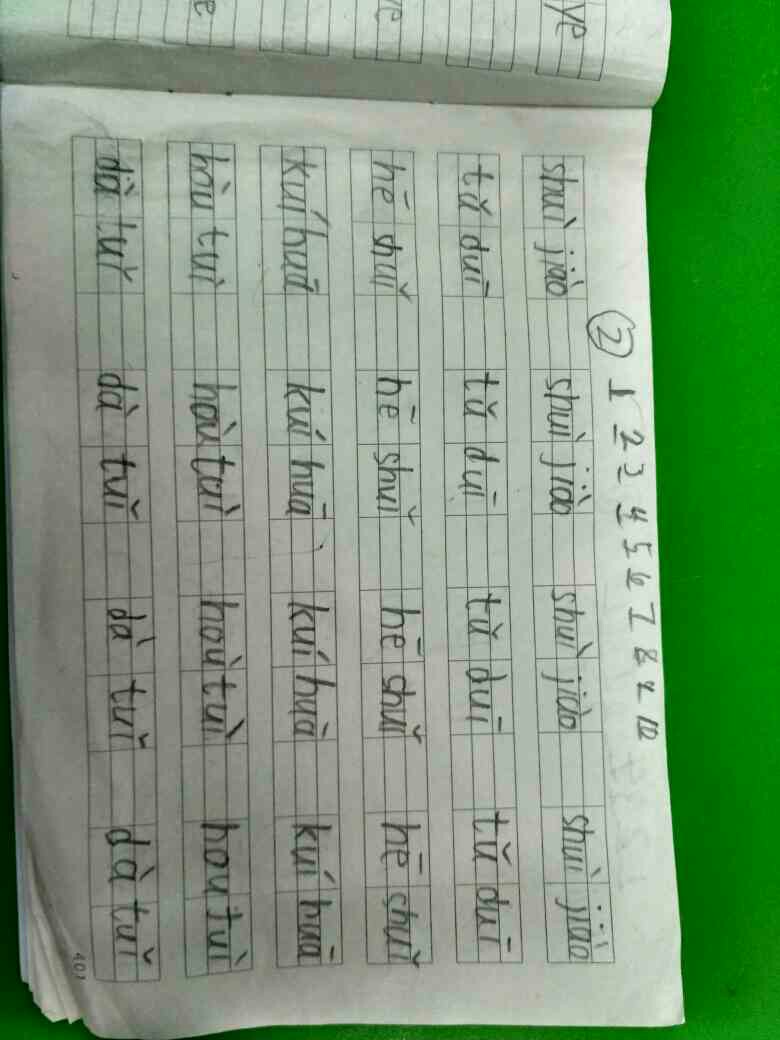 ye
ve
e
1 2 3 4 5 6 7 8 9 10
②
shuì jiào shuì jiào shuì jiào shuì jiào
tǔ duī tǔ duī tǔ duī tǔ duī
hē shuǐ hē shuǐ hē shuǐ hē shuǐ
kuí huā kuí huā kuí huā kuí huā
hòu tuì hòu tuì hòu tuì hòu tuì
dà tuǐ dà tuǐ dà tuǐ dà tuǐ
401